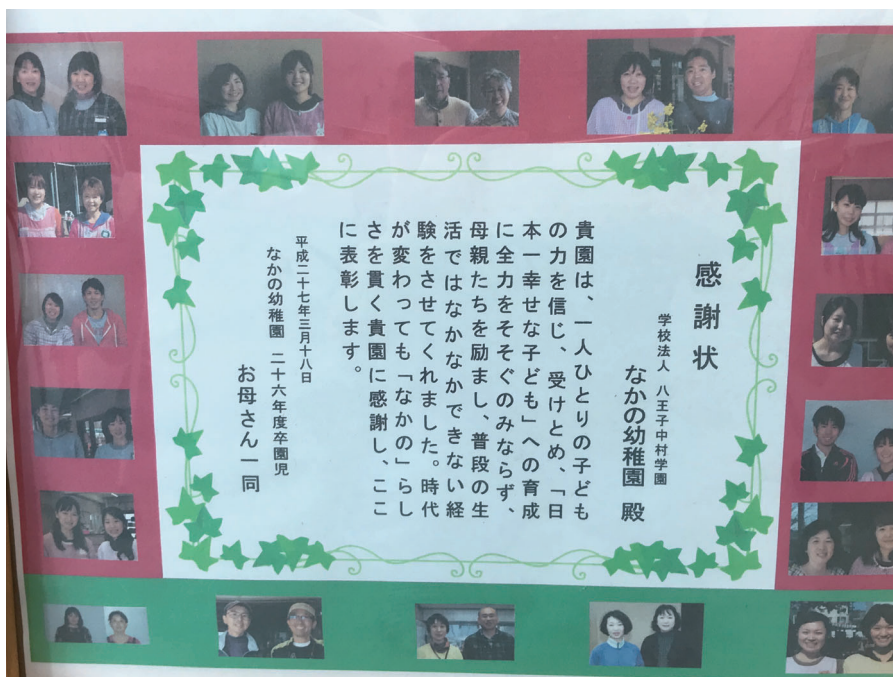 感謝状
学校法人 八王子中村学園
なかの幼稚園 殿
貴園は、一人ひとりの子ども
の力を信じ、受けとめ、「日
本一幸せな子ども」への育成
に全力をそそぐのみならず、
母親たちを励まし、普段の生
活ではなかなかできない経
験をさせてくれました。時代
が変わっても「なかの」らし
さを貫く貴園に感謝し、ここ
に表彰します。
平成二十七年三月十八日
なかの幼稚園 二十六年度卒園児
お母さん一同